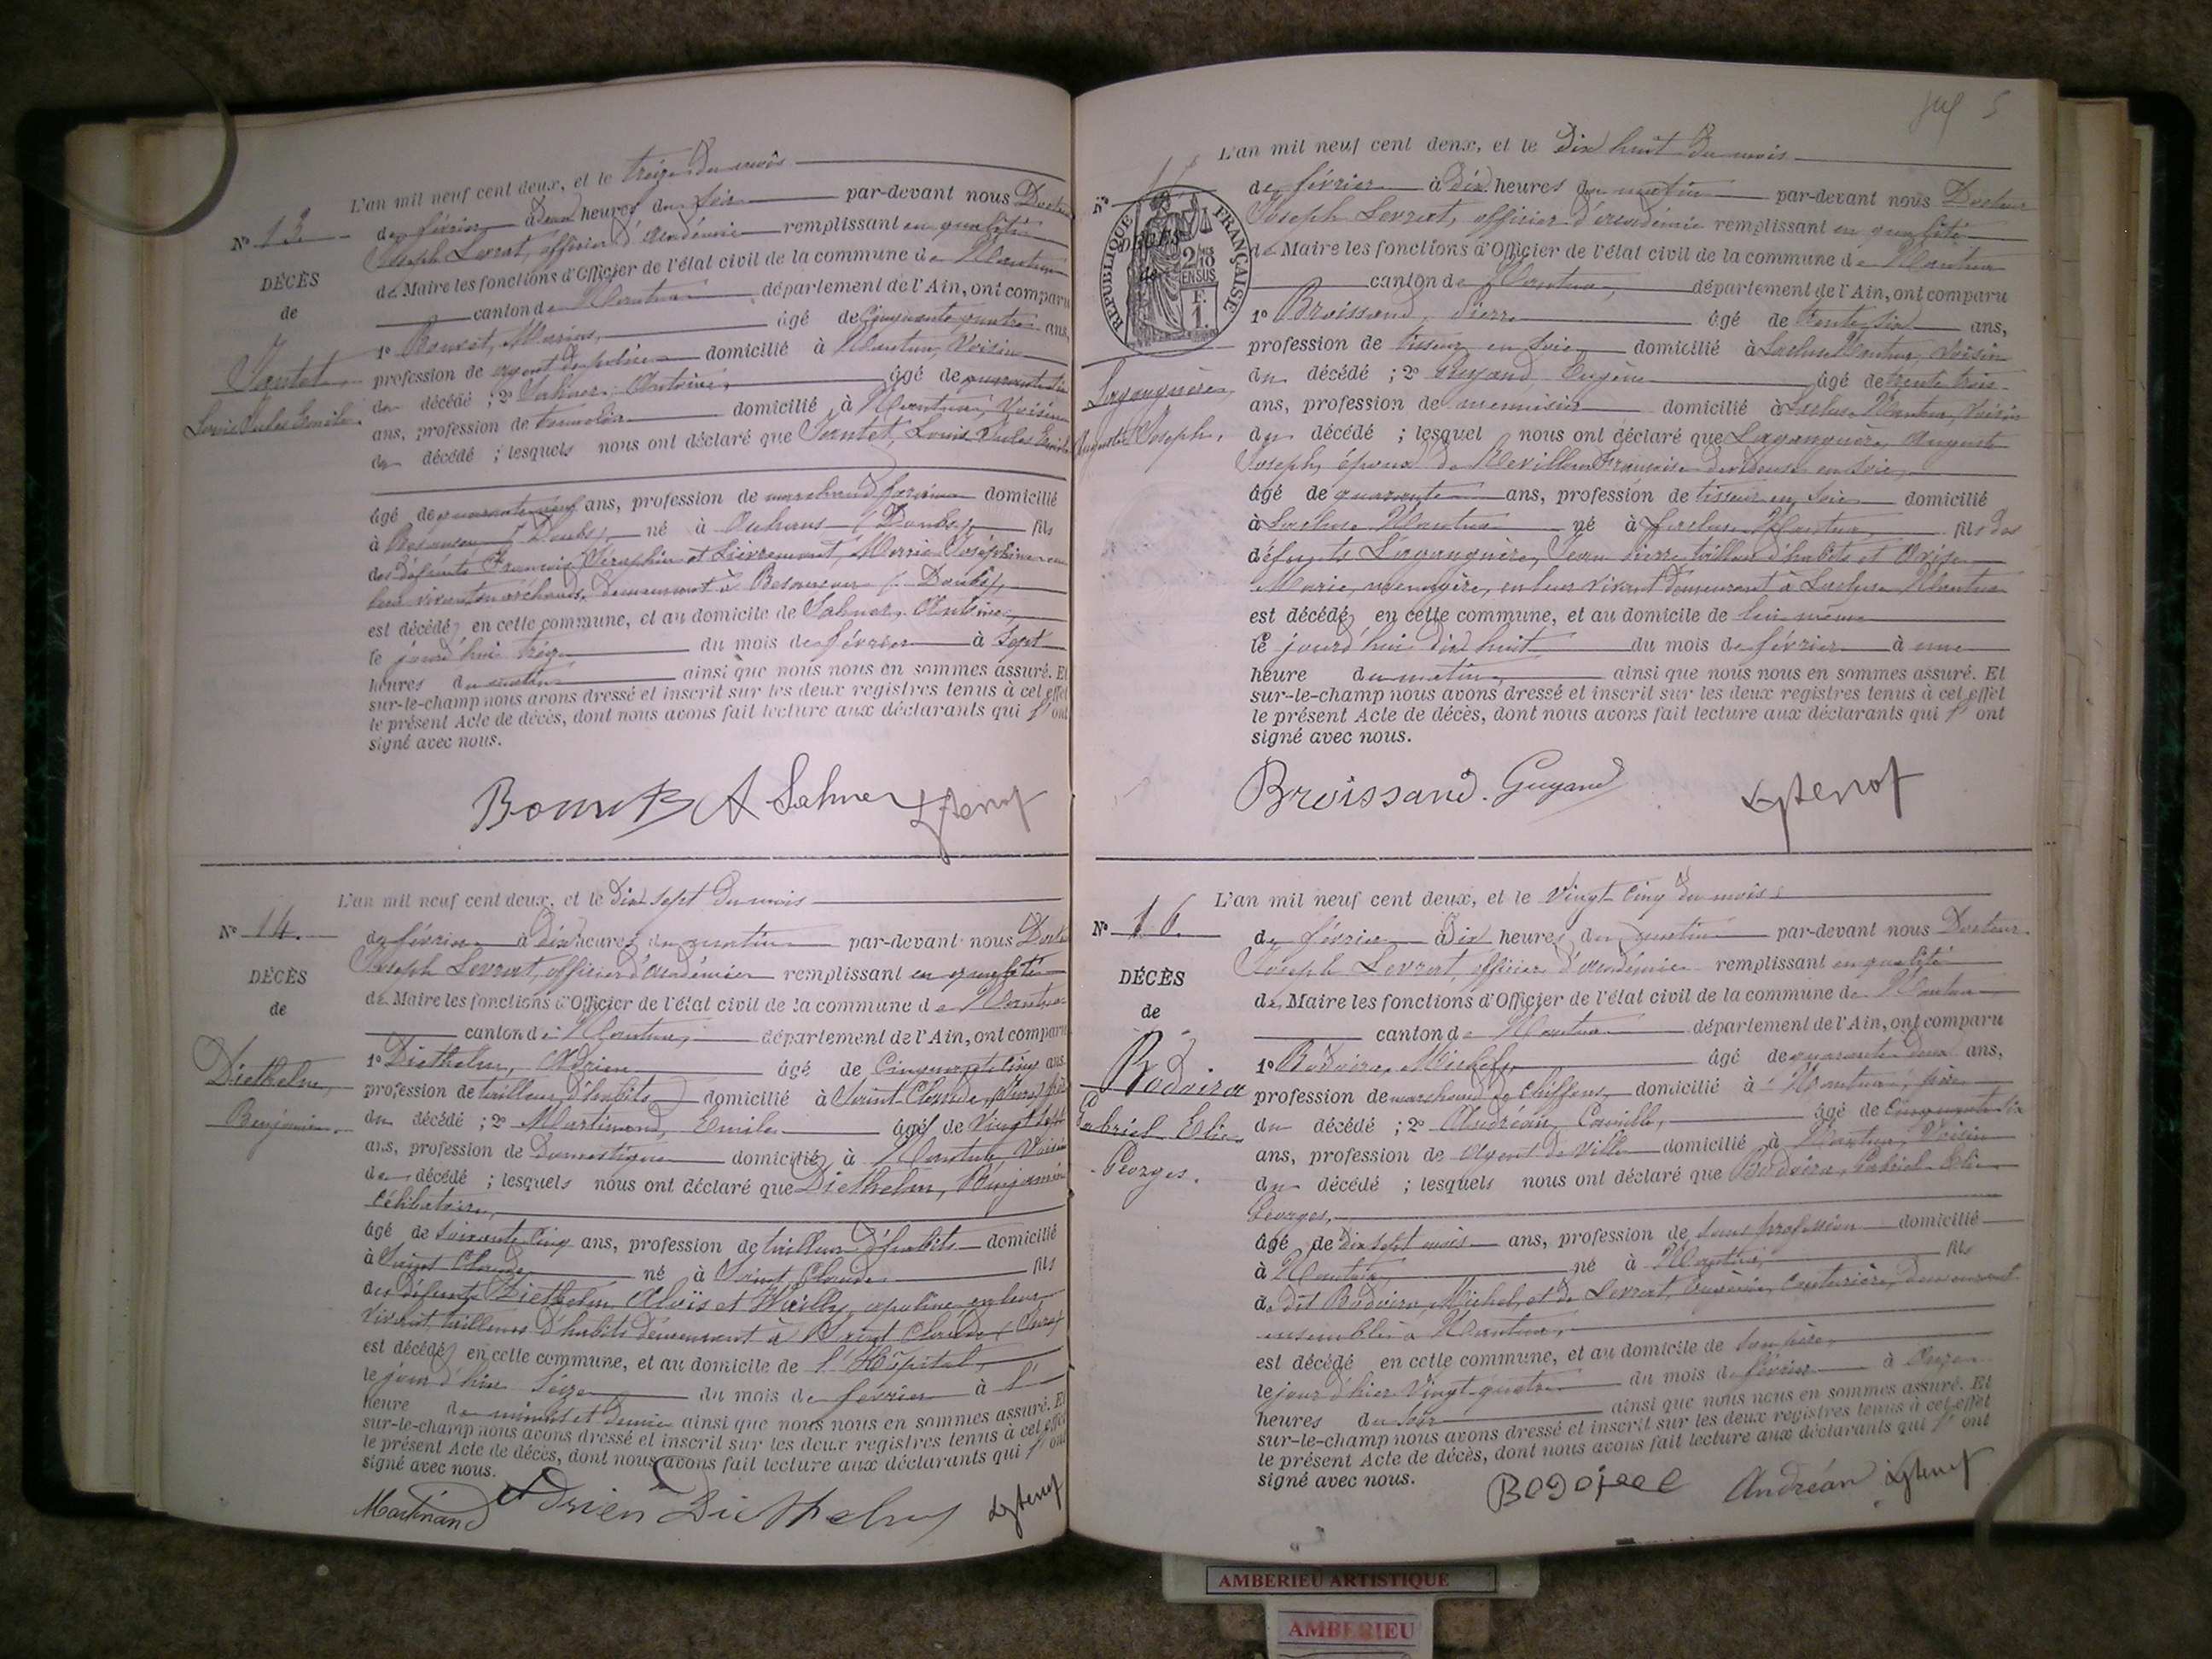 L'an mil neuf cent deux, et le treize du mois
N° 13
de février à deux heures du soir par-devant nous Docteur
Joseph Levrat, officier d'académie remplissant en qualité
DÉCÈS
de Maire les fonctions d'Officier de l'état civil de la commune de Nantua
de
canton de Nantua, département de l'Ain, ont comparu
1° Marius, âgé de cinquante quatre ans,
profession de agent de police domicilié à Nantua, voisin
Louis Jules Emile
du décédé ; 2° Sahner, Antoine, âgé de
ans, profession de domicilié à Nantua, voisin
du décédé ; lesquels nous ont déclaré que Louis Jules Emile
âgé de quarante neuf ans, profession de marchand forain domicilié
à Besançon (Doubs), né à (Doubs), fils
des défunts François Séraphin et Lievremont, Marie Joséphine en
leur vivant marchands, demeurant à Besançon (Doubs),
est décédé en cette commune, et au domicile de Sahner, Antoine,
le jourd'hui treize du mois de février à sept
heures du matin ainsi que nous nous en sommes assuré. Et
sur-le-champ nous avons dressé et inscrit sur les deux registres tenus à cet effet
le présent Acte de décès, dont nous avons fait lecture aux déclarants qui l'ont
signé avec nous.
A Sahner
L'an mil neuf cent deux, et le dix sept du mois
N° 14.
de février à dix heures du matin par-devant nous Docteur
Joseph Levrat, officier d'académie remplissant en qualité
DÉCÈS
de Maire les fonctions d'Officier de l'état civil de la commune de Nantua
de
canton de Nantua, département de l'Ain, ont comparu
Diethelm,
1° Diethelm, Adrien âgé de cinquante cinq ans
profession de tailleur d'habits domicilié à Saint-Claude (Jura) frère
Benjamin.
du décédé ; 2° Martinand, Emile âgé de vingt sept
ans, profession de domestique domicilié à Nantua, voisin
du décédé ; lesquels nous ont déclaré que Diethelm, Benjamin
célibataire,
âgé de soixante cinq ans, profession de tailleur d'habits domicilié
à Saint Claude né à Saint Claude fils
des défunts Diethelm Aloïs et apoline en leur
vivant, tailleurs d'habits demeurant à Saint Claude (Jura)
est décédé en cette commune, et au domicile de l'Hôpital,
le jour d'hier seize du mois de février à l'
heure de minuit et demie ainsi que nous nous en sommes assuré. Et
sur-le-champ nous avons dressé et inscrit sur les deux registres tenus à cet effet
le présent Acte de décès, dont nous avons fait lecture aux déclarants qui l'ont
signé avec nous.
Martinand Adrien Diethelm
5
L'an mil neuf cent deux, et le dix huit du mois
N°
de février à dix heures du matin par-devant nous Docteur
Joseph Levrat, officier d'académie remplissant en qualité
RÉPUBLIQUE FRANÇAISE
DÉCÈS
2/10 EN SUS
de Maire les fonctions d'Officier de l'état civil de la commune de Nantua
de
canton de Nantua, département de l'Ain, ont comparu
F. 1.
1° Broissand, Pierre âgé de trente six ans,
profession de tisseur en soie domicilié à Lacluse Nantua, voisin
du décédé ; 2° Guyand Eugène âgé de trente trois
Auguste Joseph.
ans, profession de menuisier domicilié à Lacluse Nantua, voisin
du décédé ; lesquel nous ont déclaré que Auguste
Joseph, époux de Françoise dévideuse en soie,
âgé de quarante ans, profession de tisseur en soie domicilié
à Lacluse Nantua né à Lacluse Nantua fils des
défunts Jean Pierre tailleur d'habits et
Marie, ménagère, en leur vivant demeurant à Lacluse Nantua
est décédé en cette commune, et au domicile de lui même
le jourd'hui dix huit du mois de février à une
heure du matin, ainsi que nous nous en sommes assuré. Et
sur-le-champ nous avons dressé et inscrit sur les deux registres tenus à cet effet
le présent Acte de décès, dont nous avons fait lecture aux déclarants qui l'ont
signé avec nous.
Broissand. Guyand
L'an mil neuf cent deux, et le vingt cinq du mois
N° 16.
de février à dix heures du matin par-devant nous Docteur
Joseph Levrat, officier d'académie remplissant en qualité
DÉCÈS
de Maire les fonctions d'Officier de l'état civil de la commune de Nantua
de
canton de Nantua département de l'Ain, ont comparu
Bodoira
1° Bodoira, Michel, âgé de quarante deux ans,
profession de marchand de chiffons, domicilié à Nantua, père
Gabriel Elie
du décédé ; 2° Andréan, Camille, âgé de cinquante six
Georges.
ans, profession de agent de ville domicilié à Nantua, voisin
du décédé ; lesquels nous ont déclaré que Bodoira, Gabriel Elie
Georges,
âgé de dix sept mois ans, profession de sans profession domicilié
à Nantua, né à Nantua, fils
de dit Bodoira, Michel, et de Levrat, couturière, demeurant
ensemble à Nantua,
est décédé en cette commune, et au domicile de son père,
le jour d'hier vingt-quatre du mois de février à onze
heures du soir ainsi que nous nous en sommes assuré. Et
sur-le-champ nous avons dressé et inscrit sur les deux registres tenus à cet effet
le présent Acte de décès, dont nous avons fait lecture aux déclarants qui l'ont
signé avec nous.
Andréan
AMBERIEU ARTISTIQUE
AMBERIEU